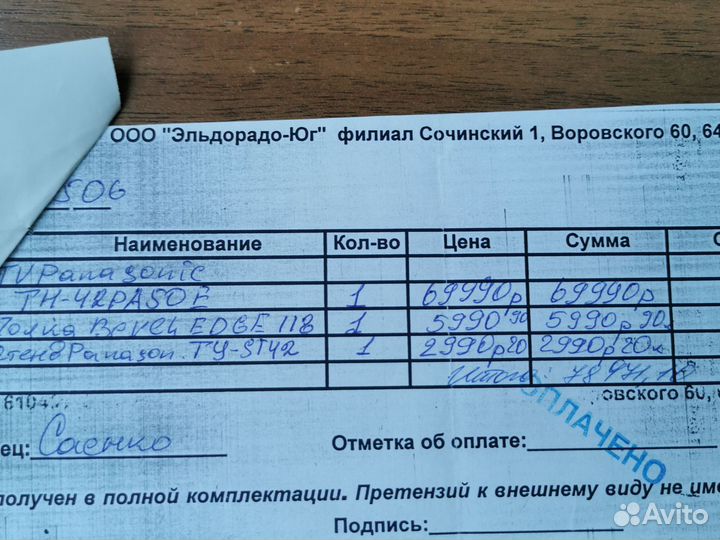 ООО "Эльдорадо-Юг" филиал Сочинский 1, Воровского 60, 64
506
Наименование Кол-во Цена Сумма С
TV Panasonic
TH-42PA50E 1 69990р 69990р
Полка Bevel EDGE 118 1 5990 90 5990р 90
Стенд Panason. TY-ST42 1 2990р20 2990р20к
Итого: 78971,10
6104 овского 60,
ОПЛАЧЕНО
ец: Саенко Отметка об оплате:
получен в полной комплектации. Претензий к внешнему виду не име
Подпись:
Avito